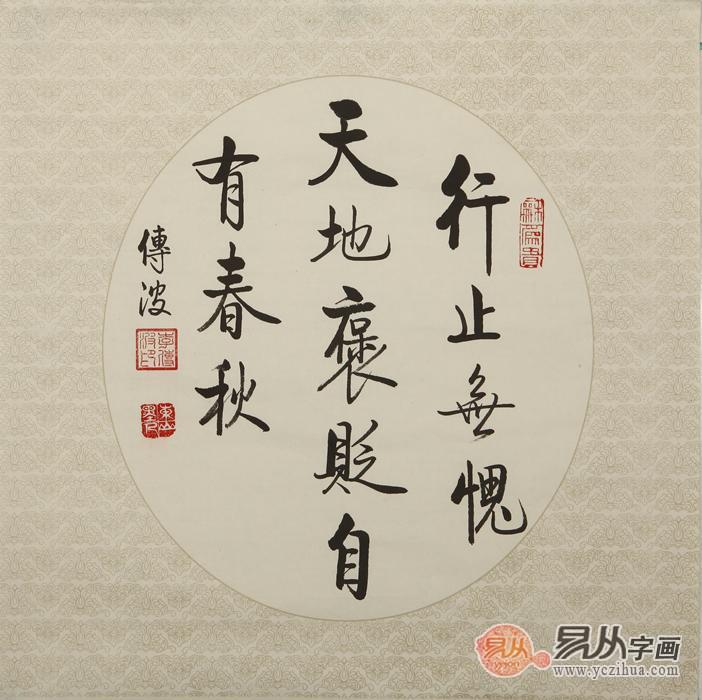 行止無愧
天地褒貶自
有春秋
傳波
李傳波印
易从字画
www.yczihua.com